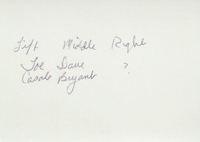 Left Middle Right
Joe Dave ?
Casale Bryant